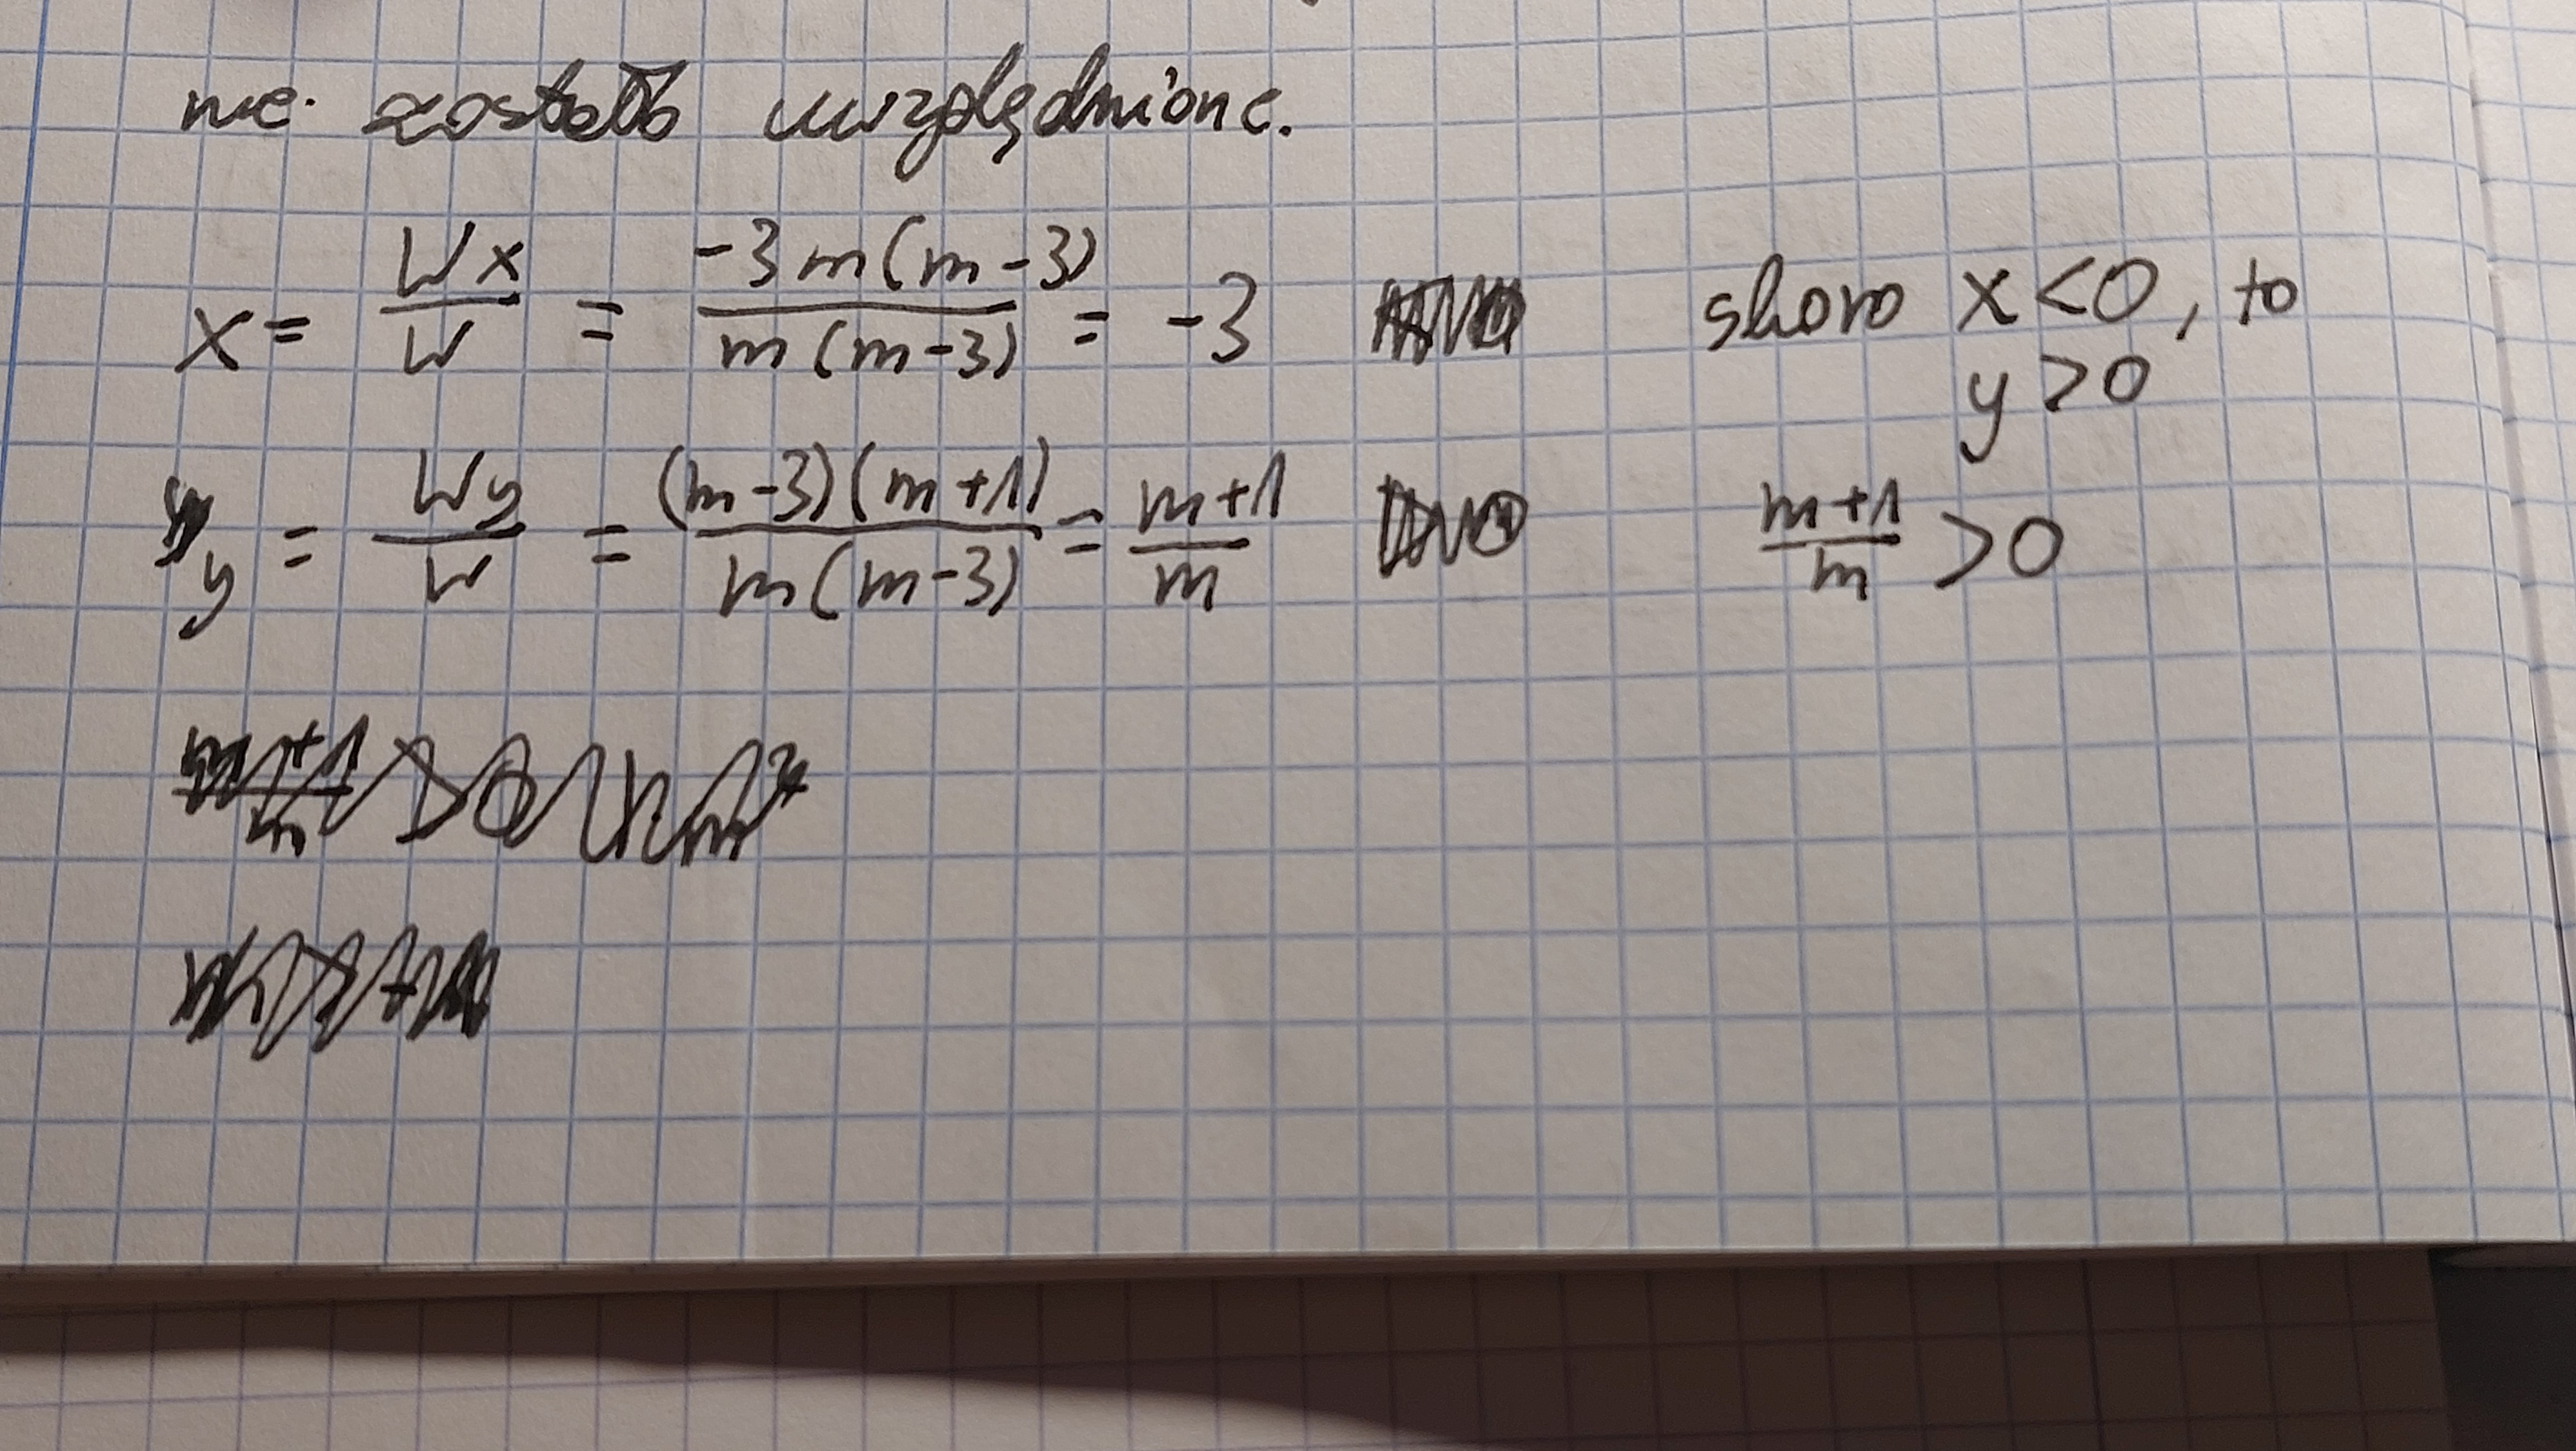 nie zostało uwzględnione.
x = Wx/W = -3m(m-3)/m(m-3) = -3 skoro x<0, to
y>0
y = Wy/W = (m-3)(m+1)/m(m-3) = m+1/m m+1/m >0